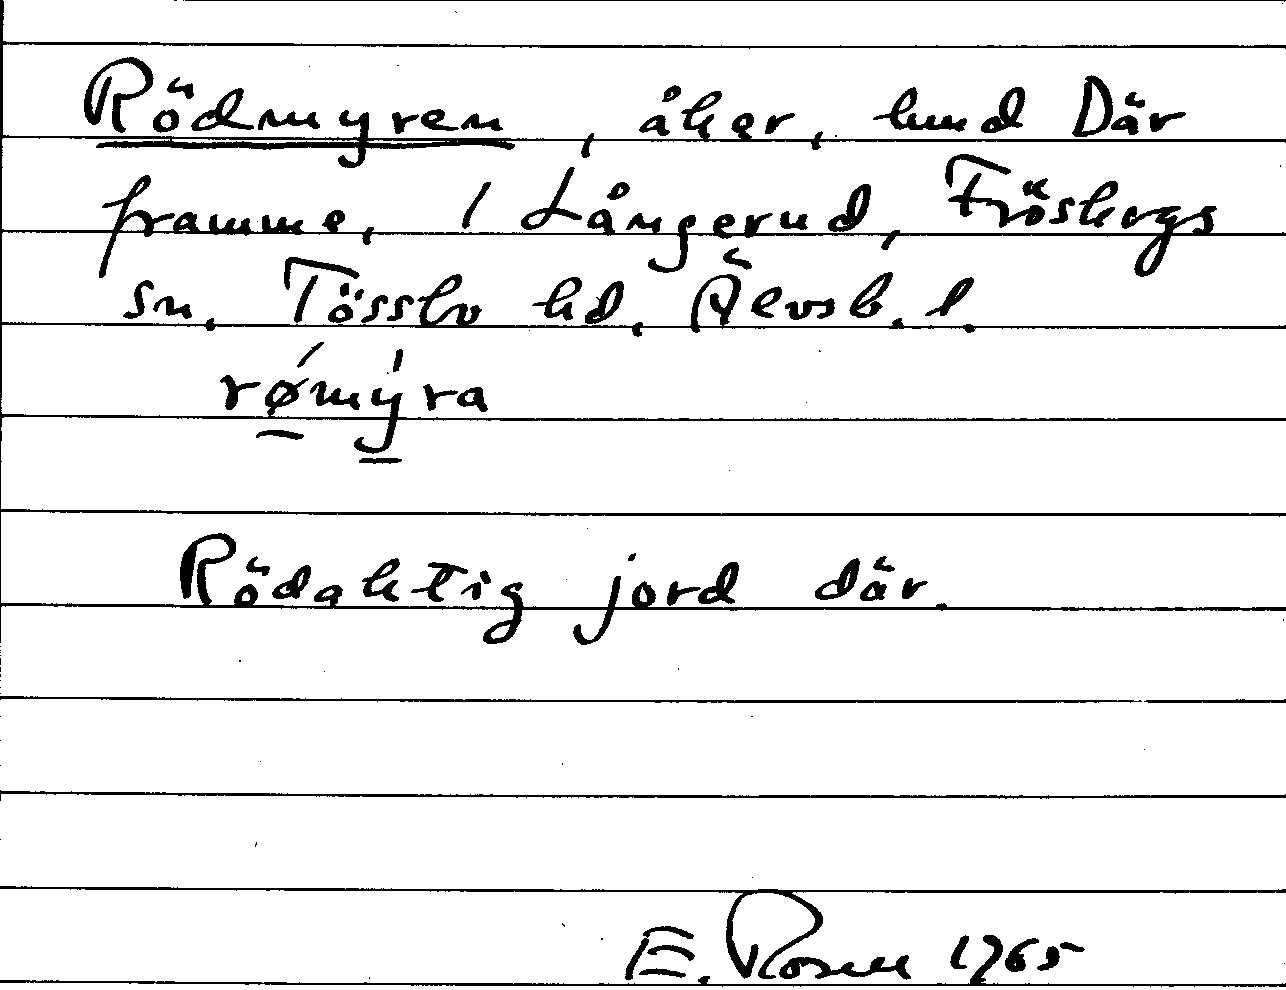 Rödmyren, åker, hmd Där
framme, / Långerud, Fröskogs
sn. Tössbo hd. Älvsb. l.
rǿmýra
Rödaktig jord där.
E. Rosell 1965